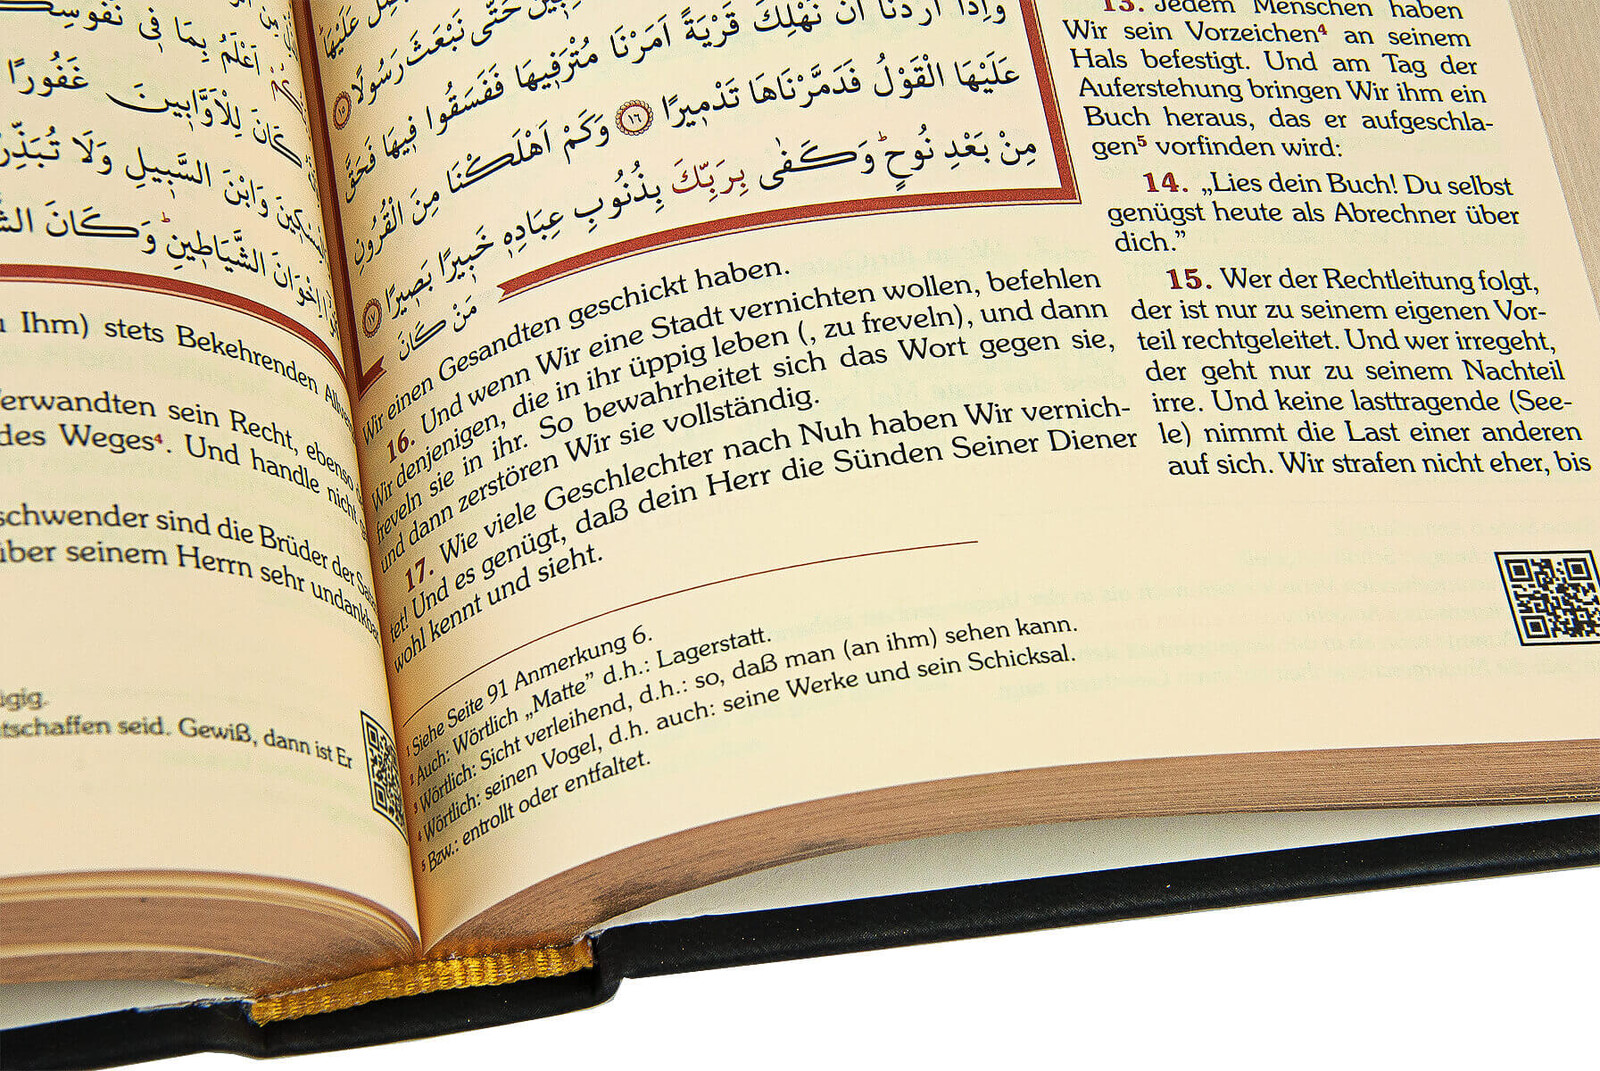 اَعْلَمُ بِمَا فٖى نُفُوسِكُمْ
كَانَ لِلْاَوَّابٖينَ غَفُورًا
وَابْنَ السَّبٖيلِ وَلَا تُبَذِّرْ
اِخْوَانَ الشَّيَاطٖينِ وَكَانَ
Ihm) stets Bekehrenden
erwandten sein Recht, ebenso
des Weges⁴. Und handle nicht
schwender sind die Brüder der
über seinem Herrn sehr undankbar
tschaffen seid. Gewiß, dann ist Er
حَتّٰى نَبْعَثَ رَسُولًا ﴿١٥﴾
وَاِذَا اَرَدْنَا اَنْ نُهْلِكَ قَرْيَةً اَمَرْنَا مُتْرَفٖيهَا فَفَسَقُوا فٖيهَا فَحَقَّ
عَلَيْهَا الْقَوْلُ فَدَمَّرْنَاهَا تَدْمٖيرًا ﴿١٦﴾ وَكَمْ اَهْلَكْنَا مِنَ الْقُرُونِ
مِنْ بَعْدِ نُوحٍ وَكَفٰى بِرَبِّكَ بِذُنُوبِ عِبَادِهٖ خَبٖيرًا بَصٖيرًا ﴿١٧﴾
مَنْ كَانَ
13. Jedem Menschen haben
Wir sein Vorzeichen⁴ an seinem
Hals befestigt. Und am Tag der
Auferstehung bringen Wir ihm ein
Buch heraus, das er aufgeschla-
gen⁵ vorfinden wird:
14. „Lies dein Buch! Du selbst
genügst heute als Abrechner über
dich.”
15. Wer der Rechtleitung folgt,
der ist nur zu seinem eigenen Vor-
teil rechtgeleitet. Und wer irregeht,
der geht nur zu seinem Nachteil
irre. Und keine lasttragende (See-
le) nimmt die Last einer anderen
auf sich. Wir strafen nicht eher, bis
Wir einen Gesandten geschickt haben.
16. Und wenn Wir eine Stadt vernichten wollen, befehlen
Wir denjenigen, die in ihr üppig leben (, zu freveln), und dann
freveln sie in ihr. So bewahrheitet sich das Wort gegen sie,
und dann zerstören Wir sie vollständig.
17. Wie viele Geschlechter nach Nuh haben Wir vernich-
tet! Und es genügt, daß dein Herr die Sünden Seiner Diener
wohl kennt und sieht.
¹ Siehe Seite 91 Anmerkung 6.
² Auch: Wörtlich „Matte” d.h.: Lagerstatt.
³ Wörtlich: Sicht verleihend, d.h.: so, daß man (an ihm) sehen kann.
⁴ Wörtlich: seinen Vogel, d.h. auch: seine Werke und sein Schicksal.
⁵ Bzw.: entrollt oder entfaltet.